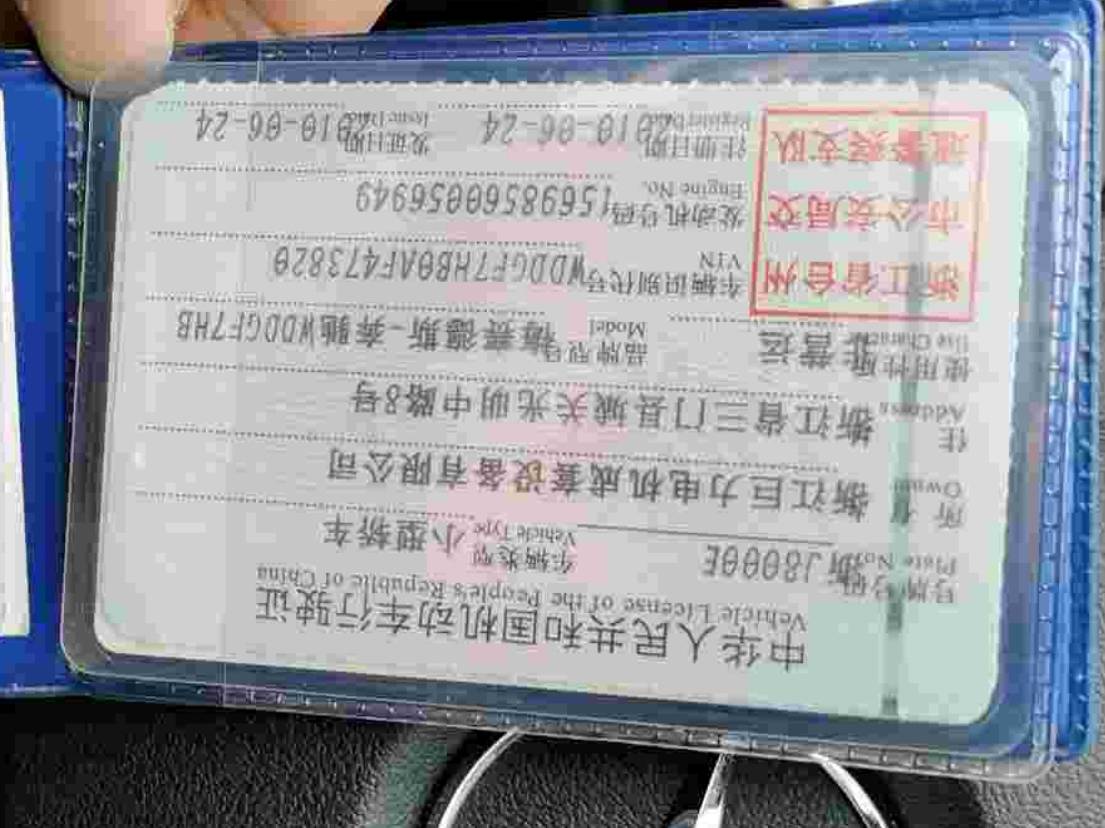 中华人民共和国机动车行驶证
Vehicle License of the People's Republic of China
号牌号码 浙J8000E 车辆类型 小型轿车
Plate No. Vehicle Type
所有人 浙江巨力电机成套设备有限公司
Owner
住 浙江省三门县城关光明中路8号
Address
使用性 非营运 品牌型号 梅赛德斯-奔驰WDDGF7HB
Use Character Model
浙江省台州
市公安局交
通警察支队
车辆识别代号 WDDGF7HB0AF473820
VIN
发动机号码 15698560056949
Engine No.
注册日期 2010-06-24 发证日期 2010-06-24
Register Date Issue Date